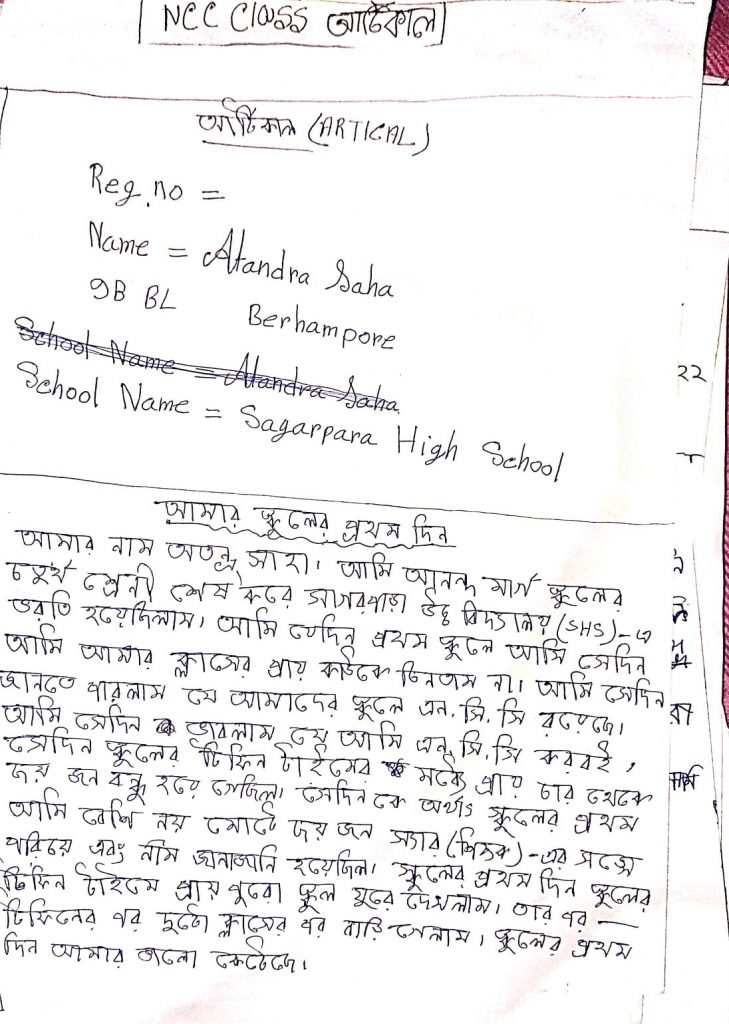 NCC Class আর্টিকাল
আর্টিকাল (ARTICAL)
Reg. no =
Name = Atandra Saha
9B BL Berhampore
School Name = Atandra Saha
School Name = Sagarpara High School
22
আমার স্কুলের প্রথম দিন
আমার নাম অতন্দ্র সাহা। আমি আনন্দ মার্গ স্কুলের
চতুর্থ শ্রেনী শেষ করে সাগরপাড়া উচ্চ বিদ্যালয় (SHS)-এ
ভরতি হয়েছিলাম। আমি যেদিন প্রথম স্কুলে আসি সেদিন
আমি আমার ক্লাসের প্রায় কাউকে চিনতাম না। আমি সেদিন
জানতে পারলাম যে আমাদের স্কুলে এন.সি.সি রয়েছে।
আমি সেদিন ভাবলাম যে আমি এন.সি.সি করবই,
সেদিন স্কুলের টিফিন টাইমের মধ্যে প্রায় চার থেকে
ছয় জন বন্ধু হয়ে গেছিল। সেদিনকে অর্থাৎ স্কুলের প্রথম
আমি বেশি নয় মোটে ছয় জন স্যার (শিক্ষক)-এর সঙ্গে
পরিচয় এবং নাম জানাজানি হয়েছিল। স্কুলের প্রথম দিন স্কুলের
টিফিন টাইমে প্রায় পুরো স্কুল ঘুরে দেখলাম। তার পর —
টিফিনের পর দুটো ক্লাসের পর বাড়ি গেলাম। স্কুলের প্রথম
দিন আমার ভালো কেটেছে।